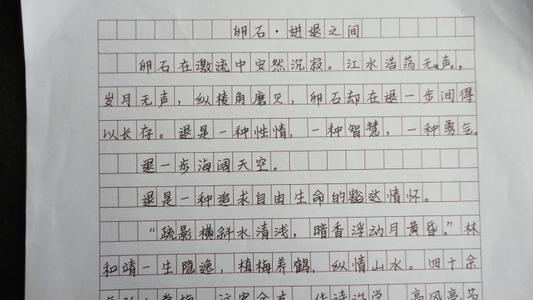 卵石·进退之间
卵石在激流中安然沉寂。江水浩荡无声,
岁月无声,纵棱角磨灭,卵石却在退一步间得
以长存。退是一种性情,一种智慧,一种勇气。
退一步海阔天空。
退是一种追求自由生命的豁达情怀。
“疏影横斜水清浅,暗香浮动月黄昏。”林
和靖一生隐逸,植梅养鹤,纵情山水。四十余